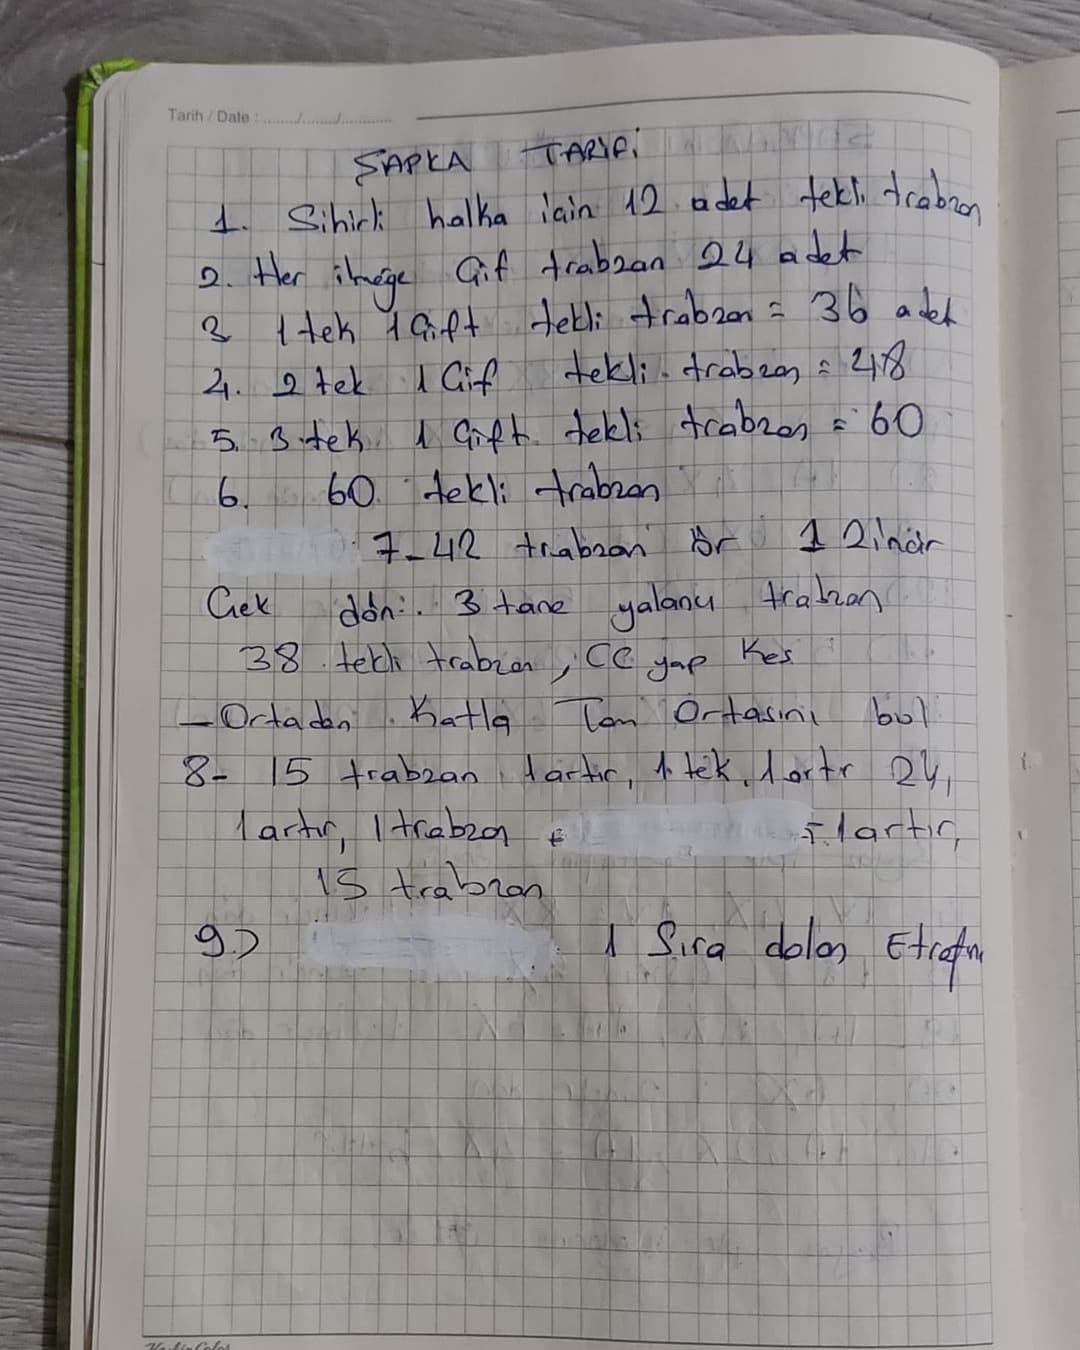 Tarih / Date : ......./......./............
ŞAPKA TARİFİ
1. Sihirli halka için 12 adet tekli trabzan
2. Her ilmeğe Çif trabzan 24 adet
3 1 tek 1 Çift tekli trabzan = 36 adet
4. 2 tek 1 Çif tekli trabzan = 48
5. 3 tek 1 Çift tekli trabzan = 60
6. 60 tekli trabzan
7- 42 trabzan ör 1 Zincir
Çek dön. 3 tane yalancı trabzan
38 tekli trabzan, CC yap Kes
- Ortadan Katla Tam Ortasını bul
8- 15 trabzan 1 artır, 1 tek, 1 artır 24,
1 artır, 1 trabzan 1 artır,
15 trabzan
9.) 1 Sıra dolan Etrafını